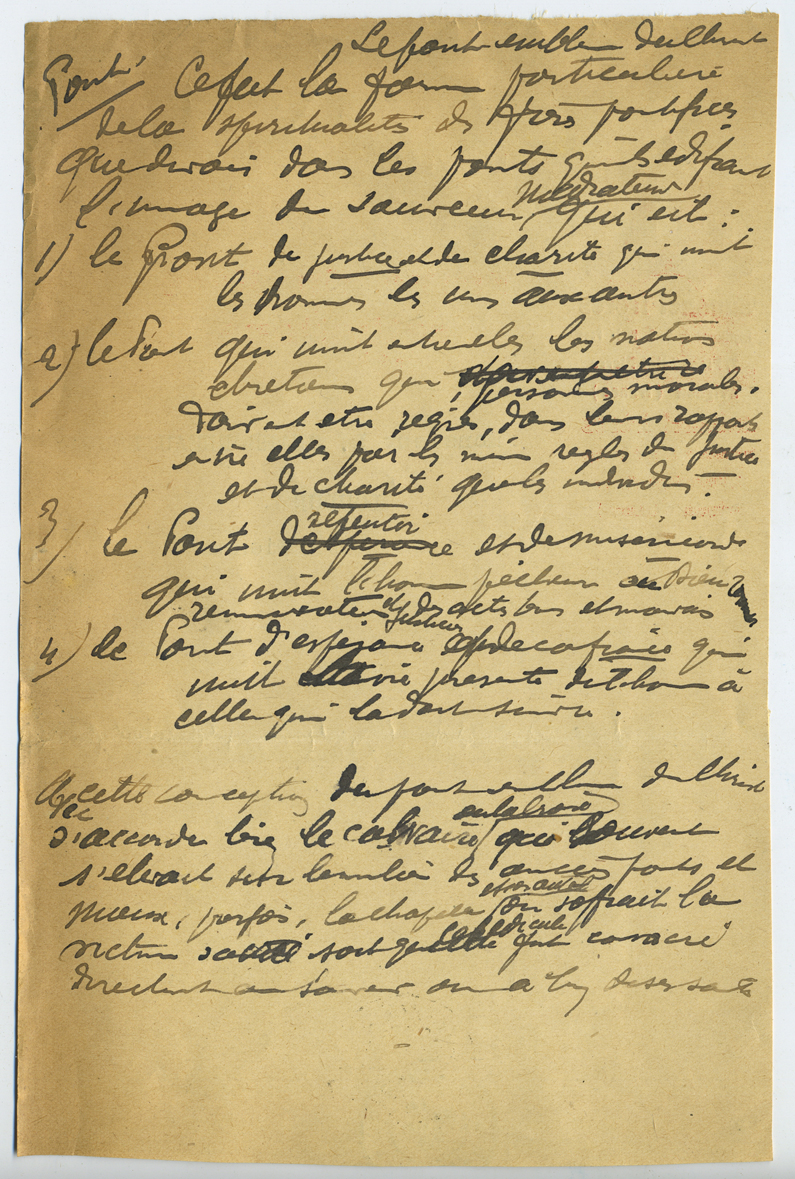 Le pont emblème du Christ
Pont/ Ce fut la forme particulière
de la spiritualité des frères pontifes
que de voir dans les ponts qu'ils édifiaient
l'image du sauveur médiateur qui est :
1) le Pont de justice et de charité qui unit
les hommes les uns aux autres
2) le Pont qui unit entre elles les nations
chrétiennes qui, personnes morales,
doivent être régies, dans leurs rapports
entre elles par les mêmes règles de justice
et de charité que les individus.
3) le Pont de repentir et de miséricorde
qui unit l'homme pécheur au Dieu
rémunérateur et justicier des actes bons et mauvais
4) le Pont d'espérance et de confiance qui
unit la vie présente de l'homme à
celle qui la doit suivre.
Avec cette conception du pont emblème du Christ
s'accorde bien le calvaire ou la croix qui souvent
s'élevait sur le milieu des anciens ponts et
mieux, parfois, la chapelle et son autel où s'offrait la
victime sainte soit que l'édicule fut consacré
directement au Sauveur ou à l'un de ses saints